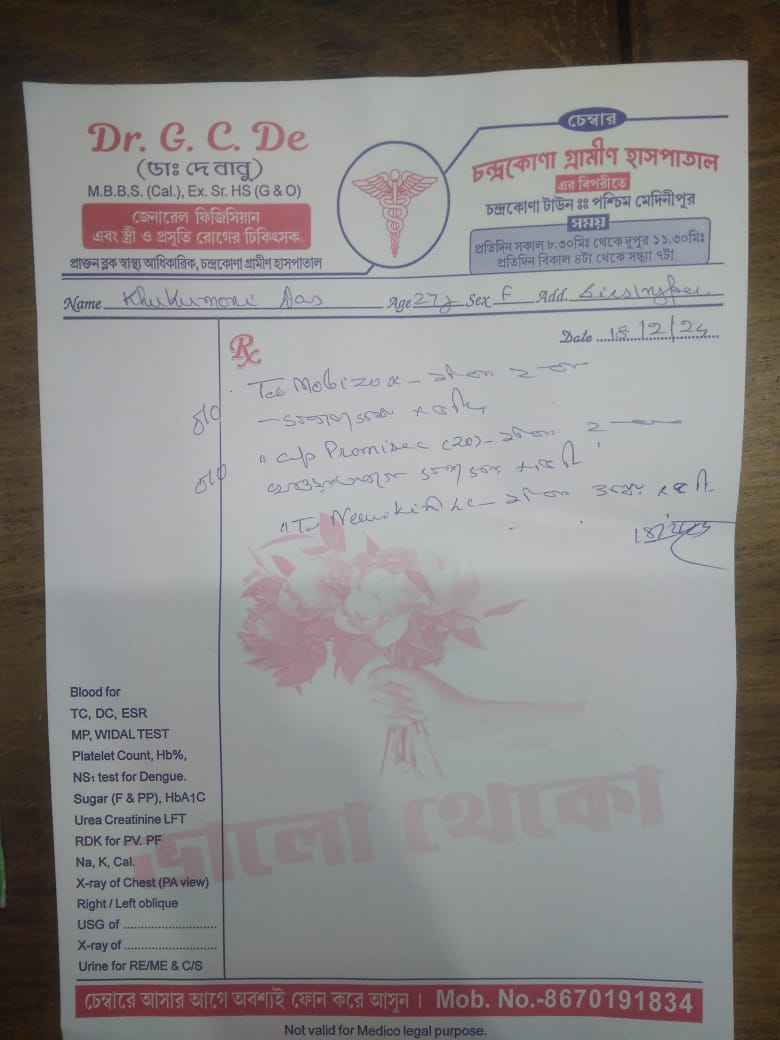 Dr. G. C. De
(ডাঃ দে বাবু)
M.B.B.S. (Cal.), Ex. Sr. HS (G & O)
জেনারেল ফিজিসিয়ান
এবং স্ত্রী ও প্রসূতি রোগের চিকিৎসক
প্রাক্তন ব্লক স্বাস্থ্য আধিকারিক, চন্দ্রকোণা গ্রামীণ হাসপাতাল
চেম্বার
চন্দ্রকোণা গ্রামীণ হাসপাতাল
এর বিপরীতে
চন্দ্রকোণা টাউন ঃঃ পশ্চিম মেদিনীপুর
সময়
প্রতিদিন সকাল ৮.৩০মিঃ থেকে দুপুর ১১.৩০মিঃ
প্রতিদিন বিকাল ৪টা থেকে সন্ধ্যা ৭টা
Name Khukumoni Das Age 27y Sex F Add.
Date 18/2/25
Rx
Tab Mobizox
Cap Promisec (20)
Blood for
TC, DC, ESR
MP, WIDAL TEST
Platelet Count, Hb%,
NS1 test for Dengue.
Sugar (F & PP), HbA1C
Urea Creatinine LFT
RDK for PV. PF
Na, K, Cal.
X-ray of Chest (PA view)
Right / Left oblique
USG of
X-ray of
Urine for RE/ME & C/S
ভালো থেকো
চেম্বারে আসার আগে অবশ্যই ফোন করে আসুন। Mob. No.-8670191834
Not valid for Medico legal purpose.